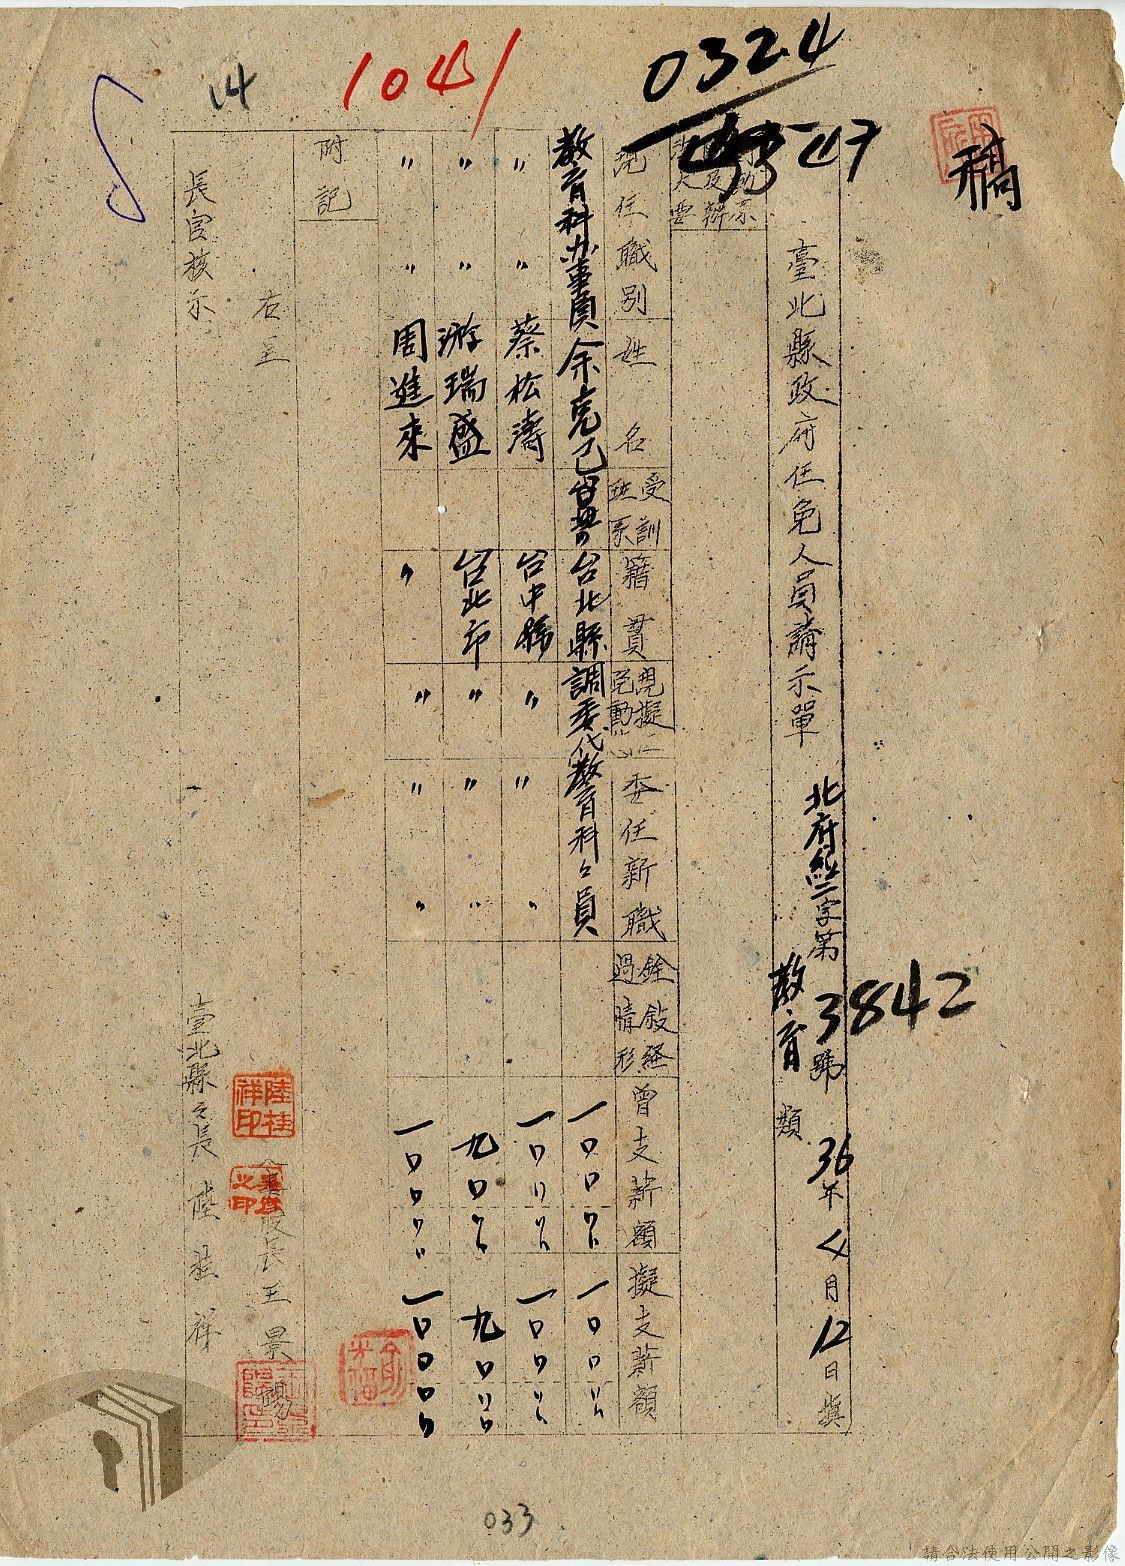 0324
47
1041
14
稿
臺北縣政府任免人員請示單
北府經二字第3842號
36年4月12日
教育類
現任職別
姓名
受訓班系
籍貫
現擬
委任新職
銓敍經過情形
曾支薪額
擬支薪額
教育科办事員 余克己 台北縣 調委代教育科々員 一〇〇 一〇〇
〃 〃 蔡松濤 台中縣 〃 〃 〃 一〇 一〇〇
〃 〃 游瑞盛 台北市 〃 〃 〃 九〇 九〇
〃 〃 周進來 〃 〃 〃 〃 一〇〇 一〇〇
附記
右呈
長官核示
長王景
臺北縣々長陸桂祥
陸桂祥印
033
請合法使用公開之影像